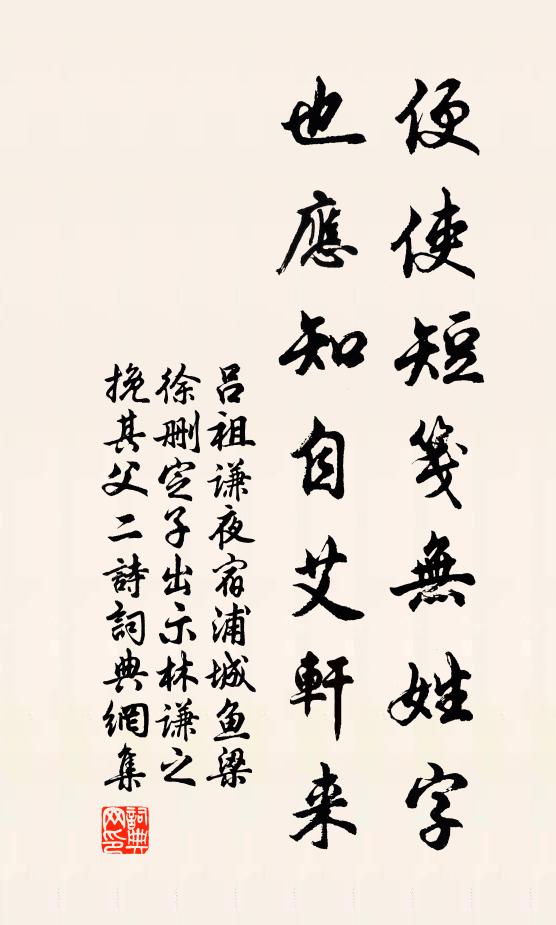 便使短箋無姓字
也應知自艾軒来
吕祖谦夜宿浦城鱼梁
徐删定子出示林谦之
挽其父二詩詞典網集
詞典网印